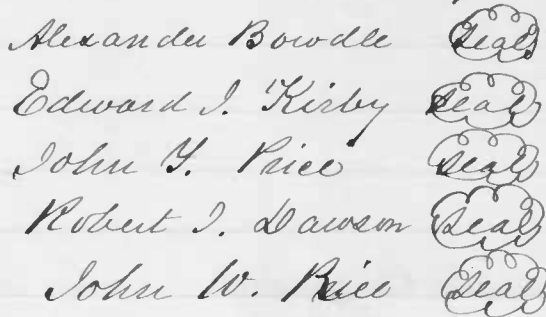 Alexander Bowdle Seal
Edward J. Kirby Seal
John Y. Price Seal
Robert J. Dawson Seal
John W. Price Seal